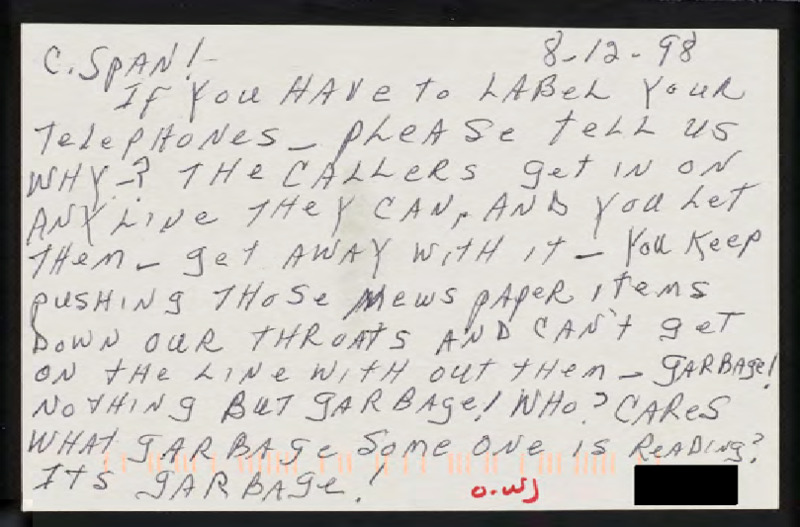 C. SPAN!- 8-12-98
If you HAVE to LABEL your
TELEPHONES - PLEASE tell us
WHY-? THE CALLERS get IN ON
ANY LINE THEY CAN, AND you Let
THEM - get AWAY WITH it - You Keep
PUSHING THOSE NEWS PAPER items
DOWN OUR THROATS AND CAN't get
ON tHE LINE WITH out tHEM - GARBAge!
NOTHING BUT GARBAge! WHO? CARES
WHAT GARBAGE SOME ONE is READING?
ITS GARBAGE!
O.WJ